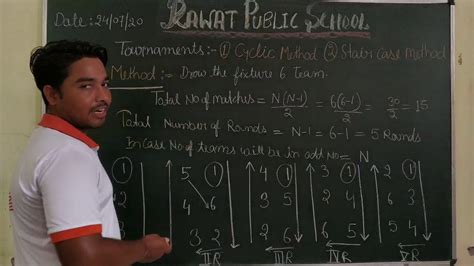 Date:- 24/07/20
RAWAT PUBLIC SCHOOL
Tournaments:- ① Cyclic Method ② Stair Case Method
Method:- Draw the fixture 6 Team.
Total No of matches = N(N-1)/2 = 6(6-1)/2 = 30/2 = 15
Total Number of Rounds = N-1 = 6-1 = 5 Rounds
In case No of teams will be in odd No = N
① 5 ① 4 ① 3 ① 2 ①
2 4 6 3 5 2 4 6 3
3 2 2 6 5 4
II R III R IV R V R